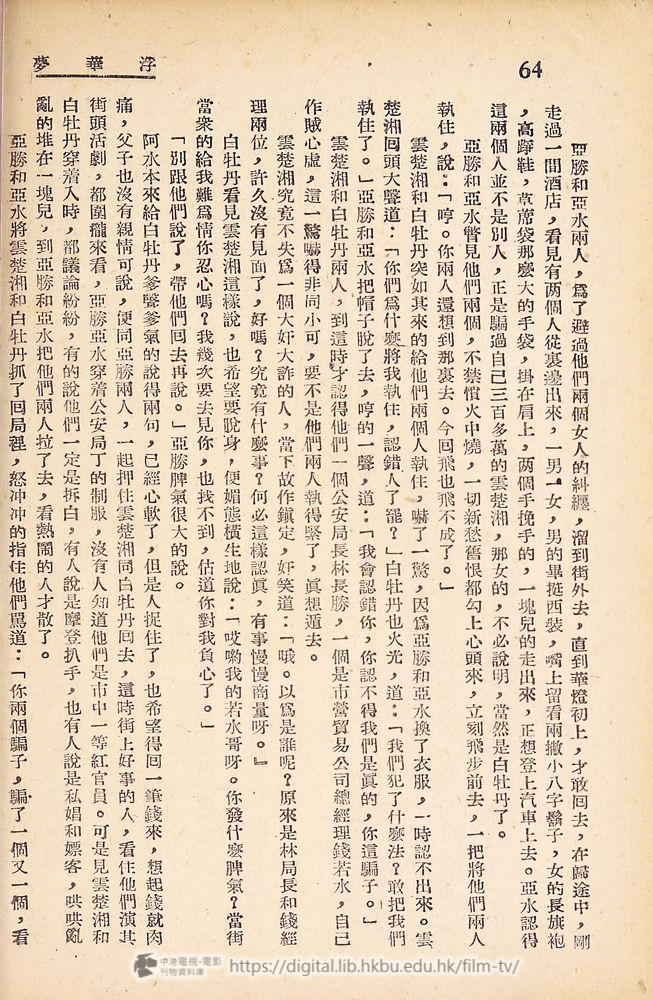 64
浮華夢
亞勝和亞水兩人，爲了避過他們兩個女人的糾纏，溜到街外去，直到華燈初上，才敢回去，在歸途中，剛
走過一間酒店，看見有两個人從裏邊出來，一男一女，男的畢挺西裝，嘴上留着兩撇小八字鬚子，女的長旗袍
，高踭鞋，草蓆袋那麽大的手袋，掛在肩上，两個手挽手的，一塊兒的走出來，正想登上汽車上去。亞水認得
這兩個人並不是別人，正是騙過自己三百多萬的雲楚湘，那女的，不必說明，當然是白牡丹了。
亞勝和亞水瞥見他們兩個，不禁憤火中燒，一切新愁舊恨都勾上心頭來，立刻飛步前去，一把將他們兩人
執住，說：「哼。你兩人還想到那裏去。今回飛也飛不成了。」
雲楚湘和白牡丹突如其來的給他們兩個人執住，嚇了一驚，因爲亞勝和亞水換了衣服，一時認不出來。雲
楚湘回頭大聲道：「你們爲什麽將我執住，認錯人了罷？」白牡丹也火光，道：「我們犯了什麽法？敢把我們
執住了。」亞勝和亞水把帽子脫了去，哼的一聲，道：「我會認錯你，你認不得我們是眞的，你這騙子。」
雲楚湘和白牡丹兩人，到這時才認得他們一個公安局長林長勝，一個是市營貿易公司總經理錢若水，自己
作賊心虛，這一驚嚇得非同小可，要不是他們兩人執得緊了，眞想遁去。
雲楚湘究竟不失爲一個大奸大詐的人，當下故作鎭定，奸笑道：「哦。以爲是誰呢？原來是林局長和錢經
理兩位，許久沒有見面了，好嗎？究竟有什麽事？何必這樣認眞，有事慢慢商量呀。』
白牡丹看見雲楚湘這樣說，也希望要脫身，便媚態橫生地說：「哎喲我的若水哥呀。你發什麽脾氣？當街
當衆的給我難爲情你忍心嗎？我幾次要去見你，也找不到，估道你對我負心了。」
「別跟他們說了，帶他們回去再說。」亞勝脾氣很大的說。
阿水本來給白牡丹爹聲爹氣的說得兩句，已經心軟了，但是人捉住了，也希望得回一筆錢來，想起錢就肉
痛，父子也沒有親情可說，便同亞勝兩人，一起押住雲楚湘同白牡丹回去，這時街上好事的人，看住他們演其
街頭活劇，都圍攏來看，亞勝亞水穿着公安局丁的制服，沒有人知道他們是市中一等紅官員。可是見雲楚湘和
白牡丹穿着入時，都議論紛紛，有的說他們一定是拆白，有人說是摩登扒手，也有人說是私娼和嫖客，哄哄亂
亂的堆在一塊兒，到亞勝和亞水把他們兩人拉了去，看熱鬧的人才散了。
亞勝和亞水將雲楚湘和白牡丹抓了回局裡，怒冲冲的指住他們駡道：「你兩個騙子，騙了一個又一個，看
中港電視·電影
刊物資料庫
https://digital.lib.hkbu.edu.hk/film-tv/